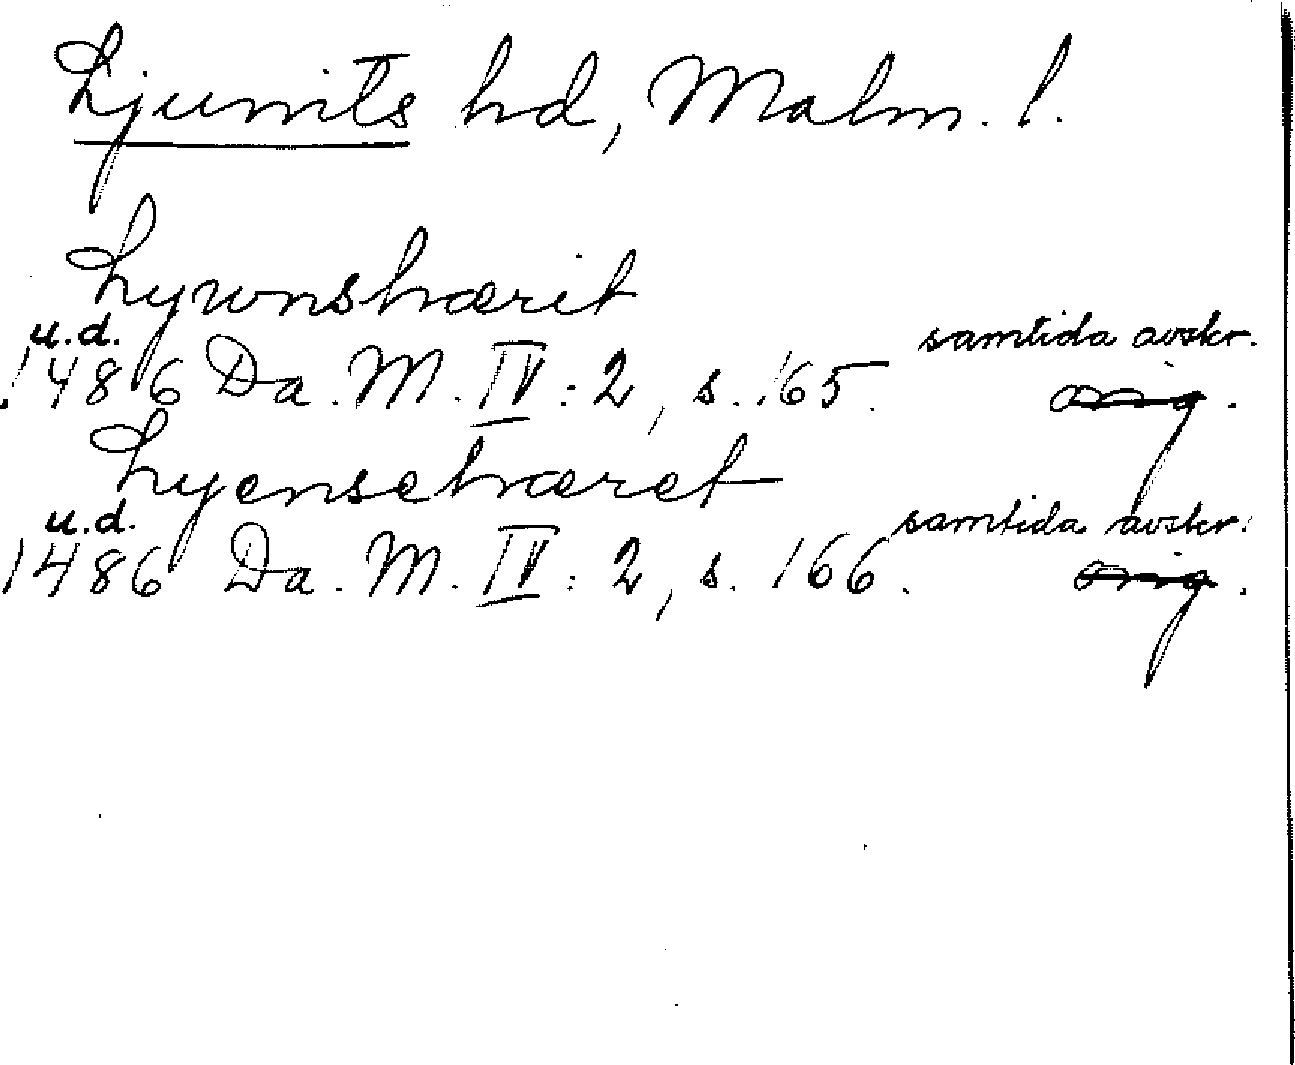 Ljunits hd, Malm. l.
Lywnshærit
u.d. samtida avskr.
1486 Da. M. IV: 2, s. 165. orig.
Lyensehæret
u.d. samtida avskr.
1486 Da. M. IV: 2, s. 166. orig.